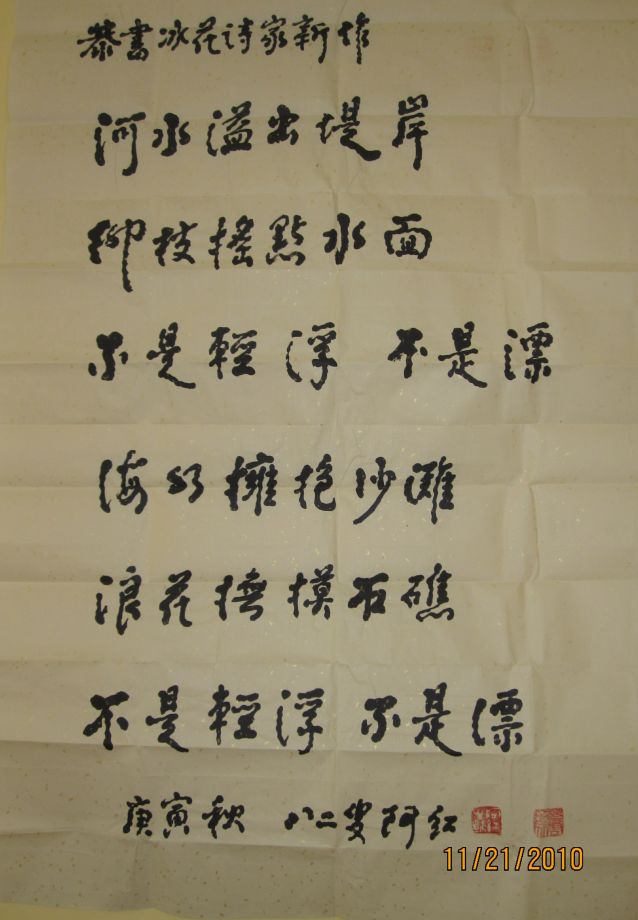 恭書冰花詩家新作
河水溢出堤岸
柳枝搖點水面
不是輕浮 不是漂
海水擁抱沙灘
浪花撫摸石礁
不是輕浮 不是漂
庚寅秋 八二叟阿紅
11/21/2010